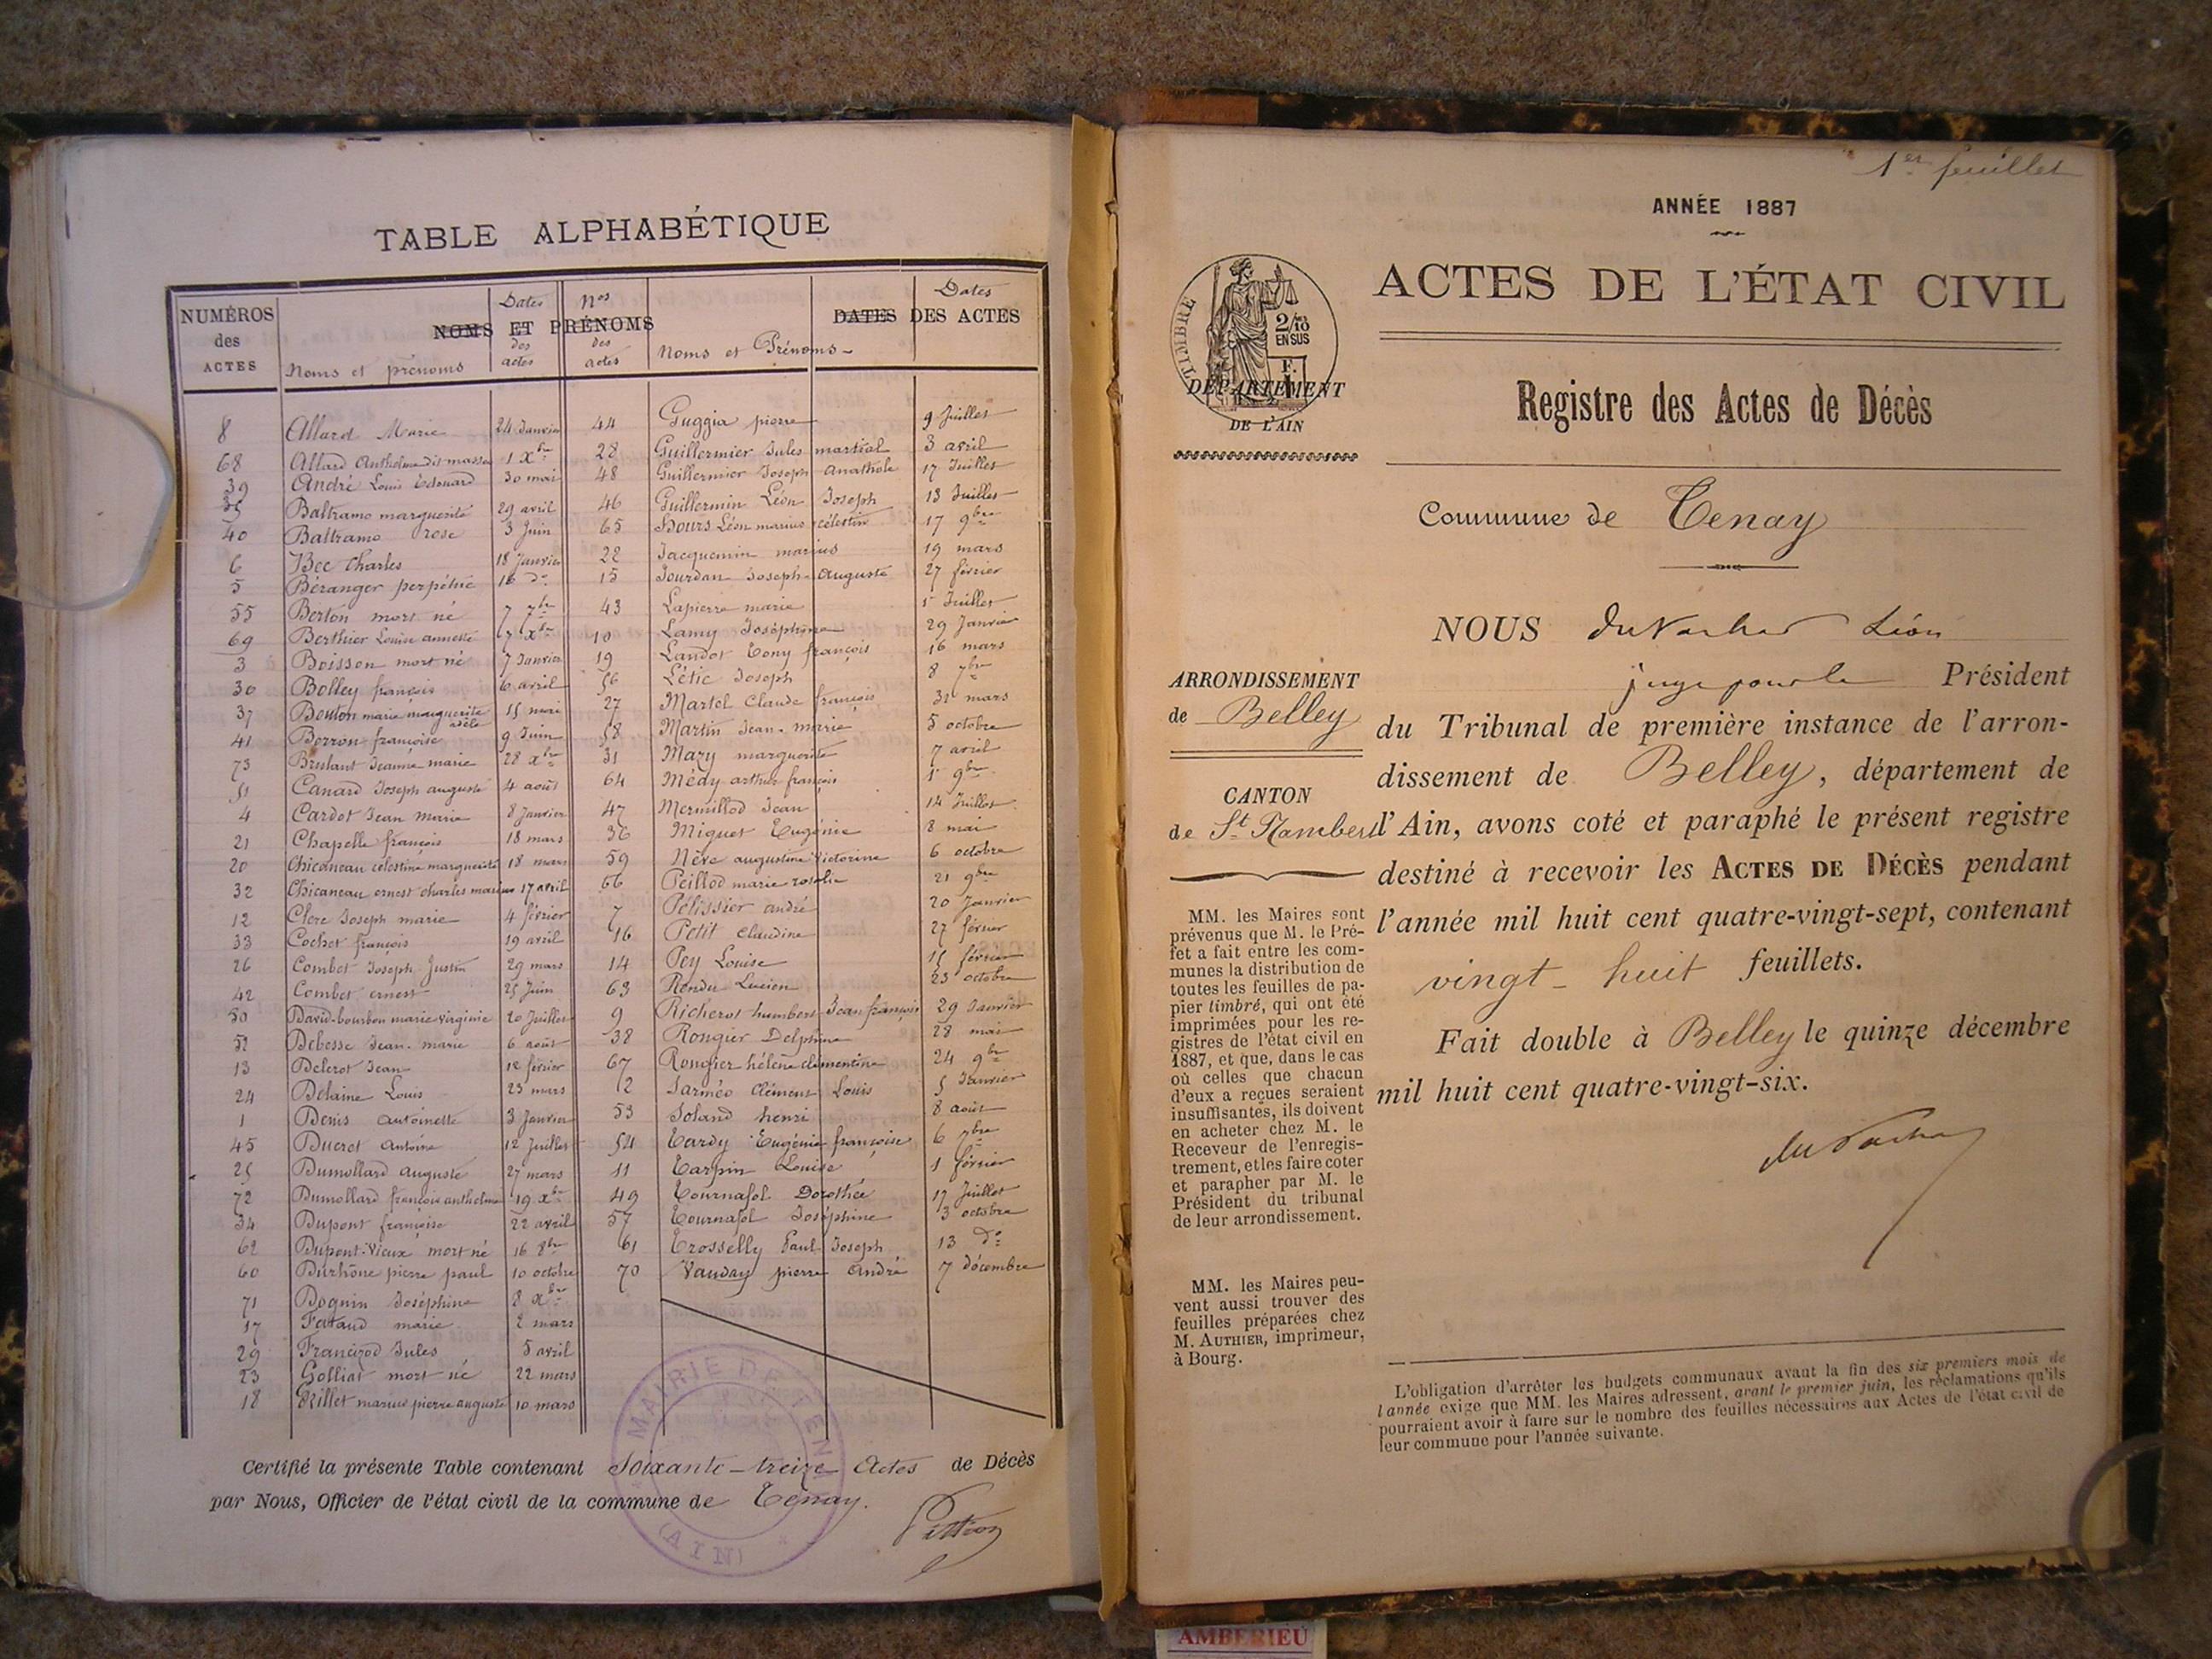 TABLE ALPHABÉTIQUE
NUMÉROS des ACTES
NOMS ET PRÉNOMS
DATES DES ACTES
Noms et prénoms
Dates des actes
Nos des actes
Noms et Prénoms
Dates
8 Allard Marie 24 Janvier
68 Allard Anthelme dit masse 1 Xbre
39 André Louis Edouard 30 mai
35 Baltramo marguerite 29 avril
40 Baltramo rose 3 Juin
6 Bec Charles 18 Janvier
5 Béranger perpétue 16 do
55 Berton mort né 7 7bre
69 Berthier Louise annette 7 Xbre
3 Boisson mort né 7 Janvier
30 Bolley françois 6 avril
37 Bouton marie marguerite adèle 15 mai
41 Borron françoise 9 Juin
73 Brulant Jeanne marie 28 Xbre
51 Canard Joseph auguste 4 août
4 Cardot Jean Marie 8 Janvier
21 Chapelle françois 18 mars
20 Chicaneau célestine marguerite 18 mars
32 Chicaneau ernest charles marius 17 avril
12 Clerc Joseph marie 4 février
33 Cochet françois 19 avril
26 Combet Joseph Justin 29 mars
42 Combet ernest 25 Juin
50 David-bourbon marie virginie 20 Juillet
52 Debesse Jean-marie 6 août
13 Delerot Jean 12 février
24 Délaine Louis 23 mars
1 Denis Antoinette 3 Janvier
45 Ducrot Antoine 12 Juillet
25 Dumollard Auguste 27 mars
72 Dumollard françois anthelme 19 Xbre
34 Dupont françoise 22 avril
62 Dupont-Vieux mort né 16 8bre
60 Durhône pierre paul 10 octobre
71 Doguin Joséphine 8 Xbre
17 Fataud marie 2 mars
29 Francizod Jules 5 avril
23 Golliat mort né 22 mars
18 Grillet marius pierre auguste 10 mars
44 Guggia pierre 9 Juillet
28 Guillermier Jules martial 3 avril
48 Guillermier Joseph Anathole 17 Juillet
46 Guillermin Léon Joseph 13 Juillet
65 Hours Léon marius célestin 17 9bre
22 Jacquemin marius 19 mars
15 Jourdan Joseph-Auguste 27 février
43 Lapierre marie 1er Juillet
10 Lamy Joséphine 29 Janvier
19 Landot Tony françois 16 mars
56 Létic Joseph 8 7bre
27 Martel Claude françois 31 mars
58 Martin Jean-marie 5 octobre
31 Mary marguerite 7 avril
64 Médy arthur françois 1er 9bre
47 Mermillod Jean 14 Juillet
36 Miguet Eugénie 8 mai
59 Nève augustine Victorine 6 octobre
66 Peillod marie rosalie 21 9bre
7 Pélissier andré 20 Janvier
16 Petit Claudine 27 février
14 Pey Louise 15 février
63 Rendu Lucien 23 octobre
9 Richerot humbert Jean françois 29 Janvier
38 Rongier Delphine 28 mai
67 Rongier hélène clémentine 24 9bre
2 Sarméo Clément Louis 5 Janvier
53 Soland henri 8 août
54 Tardy Eugénie françoise 6 7bre
11 Tarpin Louise 1 février
49 Tournafol Dorothée 17 Juillet
57 Tournafol Joséphine 3 octobre
61 Trosselly Paul Joseph 13 do
70 Vauday pierre André 7 décembre
Certifié la présente Table contenant Soixante-treize Actes de Décès
par Nous, Officier de l'état civil de la commune de Tenay.
MAIRIE DE TENAY
(AIN)
1er feuillet
ANNÉE 1887
TIMBRE
2/10 EN SUS
ACTES DE L'ÉTAT CIVIL
DÉPARTEMENT
DE L'AIN
Registre des Actes de Décès
Commune de Tenay
NOUS
Léon
juge pour le Président
ARRONDISSEMENT
de Belley
du Tribunal de première instance de l'arron-
dissement de Belley, département de
CANTON
de St Rambert
l'Ain, avons coté et paraphé le présent registre
destiné à recevoir les ACTES DE DÉCÈS pendant
l'année mil huit cent quatre-vingt-sept, contenant
vingt-huit feuillets.
Fait double à Belley le quinze décembre
mil huit cent quatre-vingt-six.
MM. les Maires sont
prévenus que M. le Pré-
fet a fait entre les com-
munes la distribution de
toutes les feuilles de pa-
pier timbré, qui ont été
imprimées pour les re-
gistres de l'état civil en
1887, et que, dans le cas
où celles que chacun
d'eux a reçues seraient
insuffisantes, ils doivent
en acheter chez M. le
Receveur de l'enregis-
trement, et les faire coter
et parapher par M. le
Président du tribunal
de leur arrondissement.
MM. les Maires peu-
vent aussi trouver des
feuilles préparées chez
M. AUTHIER, imprimeur,
à Bourg.
L'obligation d'arrêter les budgets communaux avant la fin des six premiers mois de
l'année exige que MM. les Maires adressent, avant le premier juin, les réclamations qu'ils
pourraient avoir à faire sur le nombre des feuilles nécessaires aux Actes de l'état civil de
leur commune pour l'année suivante.
AMBERIEU